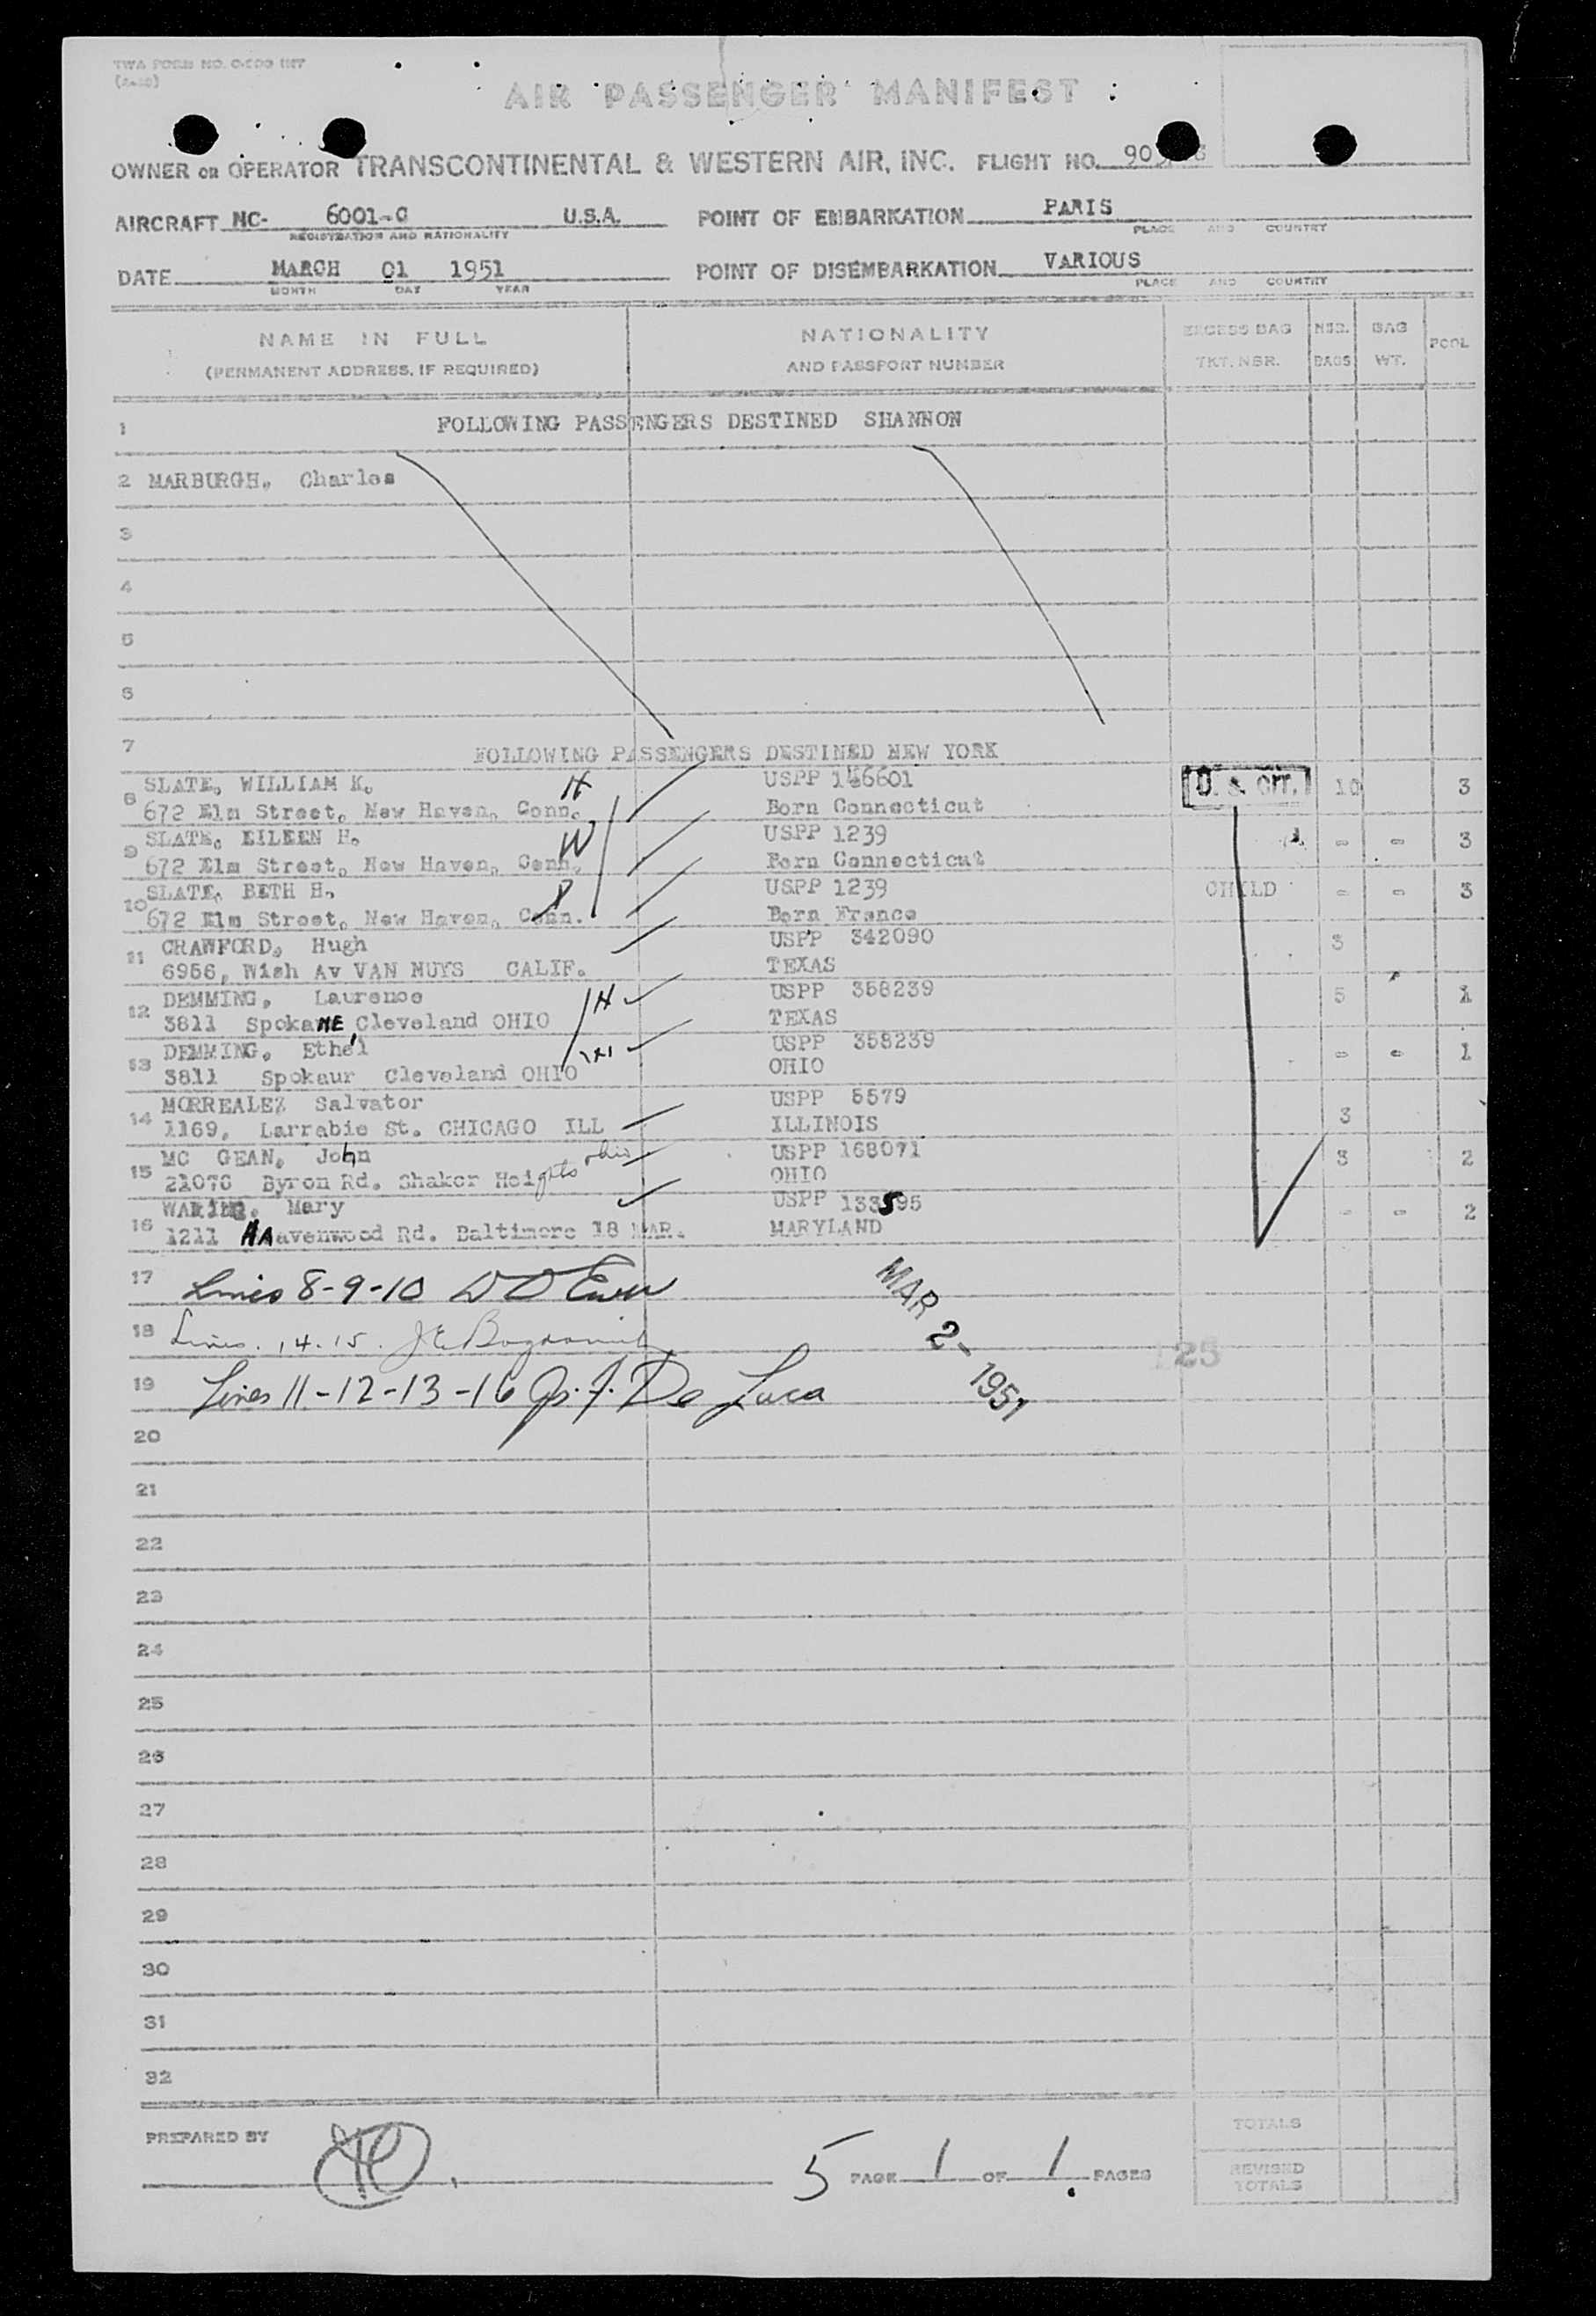 TWA FORM NO.
AIR PASSENGER MANIFEST
OWNER OR OPERATOR TRANSCONTINENTAL & WESTERN AIR, INC. FLIGHT NO. 90
AIRCRAFT NC- 6001-C U.S.A. POINT OF EMBARKATION PARIS
REGISTRATION AND NATIONALITY PLACE AND COUNTRY
DATE MARCH 01 1951 POINT OF DISEMBARKATION VARIOUS
MONTH DAY YEAR PLACE AND COUNTRY
NAME IN FULL NATIONALITY EXCESS BAG NBR. BAG PCOL
(PERMANENT ADDRESS, IF REQUIRED) AND PASSPORT NUMBER TKT. NBR. BAGS WT.
1 FOLLOWING PASSENGERS DESTINED SHANNON
2 MARBURGH, Charles
3
4
5
6
7 FOLLOWING PASSENGERS DESTINED NEW YORK
8 SLATE, WILLIAM K. H USPP 146601 U. S. CIT. 10 3
672 Elm Street, New Haven, Conn. Born Connecticut
9 SLATE, EILEEN H. W USPP 1239 - - 3
672 Elm Street, New Haven, Conn. Born Connecticut
10 SLATE, BETH H. USPP 1239 CHILD - - 3
672 Elm Street, New Haven, Conn. Born France
11 CRAWFORD, Hugh USPP 342090 3
6956, Wish Av VAN NUYS CALIF. TEXAS
12 DEMMING, Laurence H USPP 358239 5 1
3811 SpokaNE, Cleveland OHIO TEXAS
13 DEMMING, Ethel USPP 358239 - - 1
3811 Spokaur Cleveland OHIO OHIO
14 MORREALEZ Salvator USPP 5579 3
1169, Larrabie St. CHICAGO ILL ILLINOIS
15 MC GEAN, John ohio USPP 168071 3 2
21076 Byron Rd. Shaker Heights OHIO
16 WARING, Mary USPP 133595 - - 2
1211 HAavenwood Rd. Baltimore 18 MAR. MARYLAND
17 Lines 8-9-10 W D
18 Lines. 14.15. J E
19 Lines 11-12-13-16 De Luca
MAR 2- 1951
25
20
21
22
23
24
25
26
27
28
29
30
31
32
PREPARED BY TOTALS
5 PAGE 1 OF 1 PAGES REVISED TOTALS